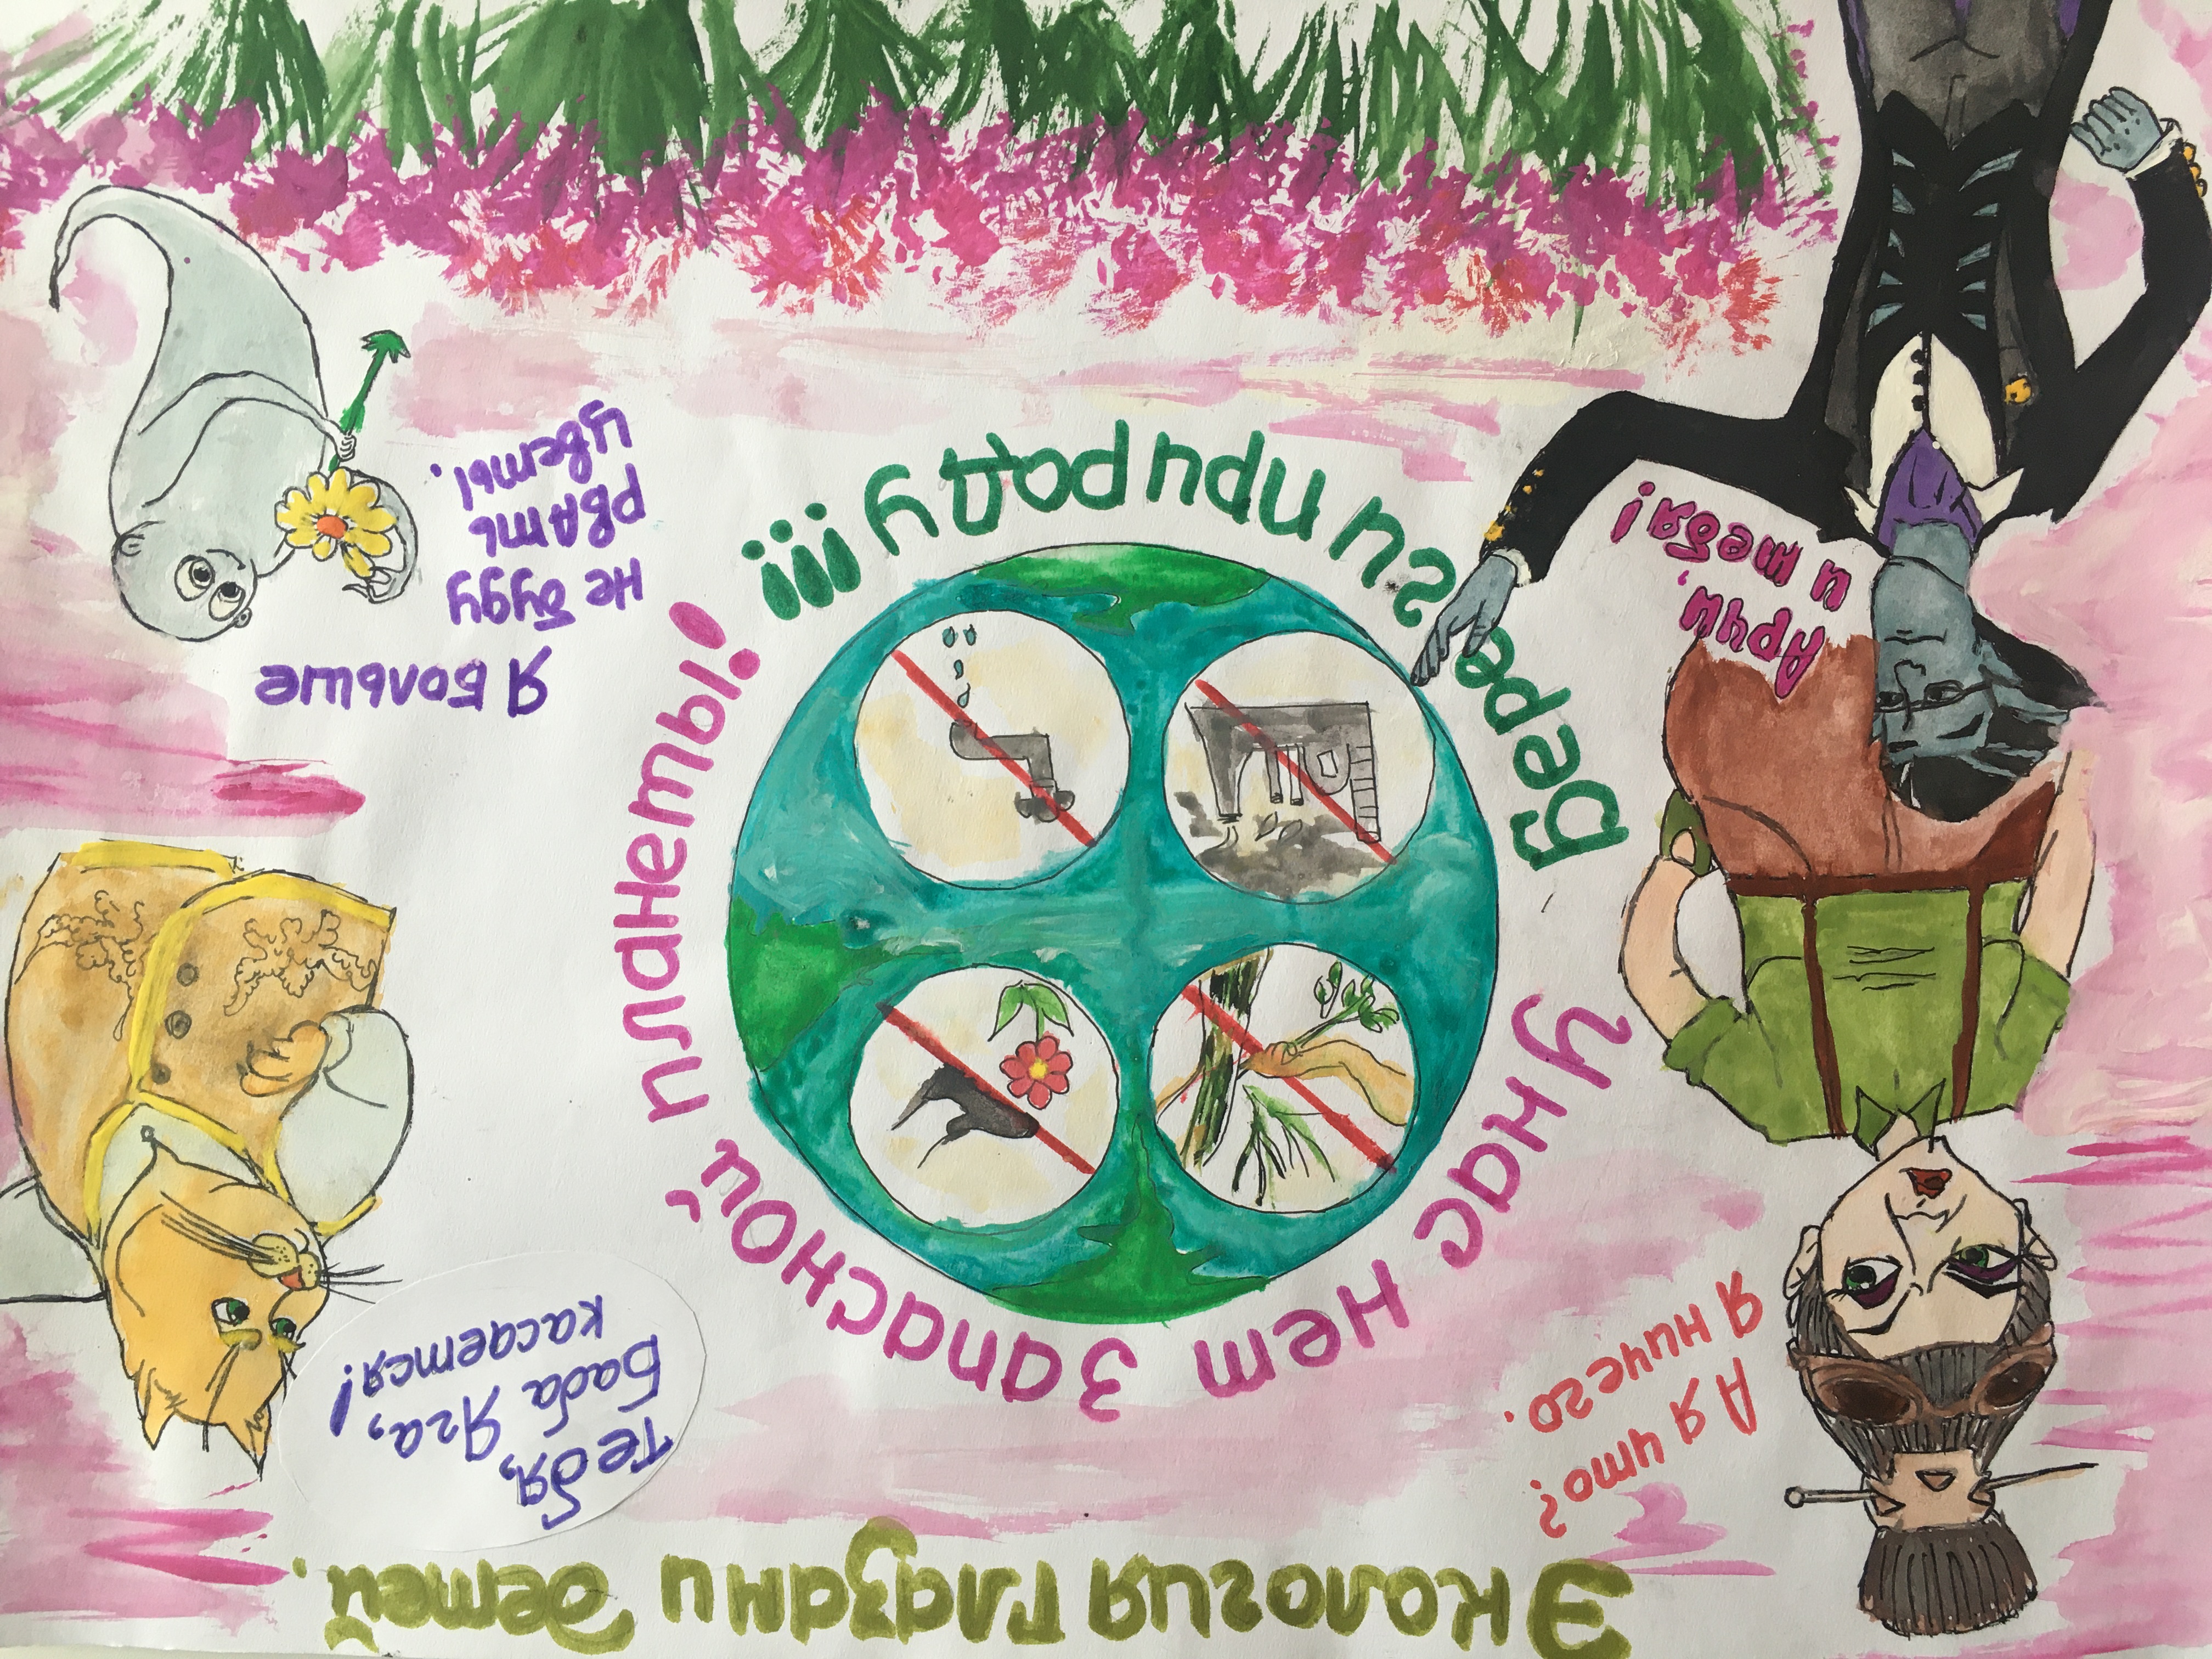 Экология глазами детей.
А я что?
Я ничего.
Тебя,
Баба Яга,
касается!
У нас нет запасной планеты!
Береги природу!!!
Арчи,
и тебя!
Я больше
не буду
рвать
цветы.